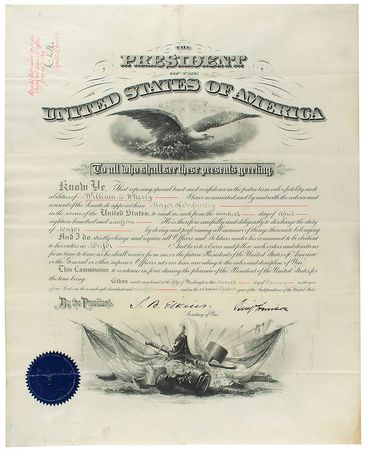 THE
PRESIDENT
OF THE
UNITED STATES OF AMERICA
To all who shall see these presents greeting:
Know Ye, That reposing special trust and confidence in the patriotism, fidelity and
abilities of William I have nominated, and by and with the advice and
consent of the Senate, do appoint him Major of Infantry
in the service of the United States: to rank as such from the day of April
eighteen hundred and He is therefore carefully and diligently to discharge the duty
of Major by doing and performing all manner of things thereunto belonging.
And I do strictly charge and require all Officers and Soldiers under his command to be obedient
to his orders as Major And he is to observe and follow such orders and directions
from time to time as he shall receive from me or the future President of the United States of America
or the General or other superior Officers set over him, according to the rules and discipline of War.
This Commission to continue in force during the pleasure of the President of the United States for
the time being.
Given under my hand at the City of Washington this day of in the year
of our Lord one thousand eight hundred and and in the year of the Independence of the United States.
By the President:
S. B. Elkins
Benj Harrison
Secretary of War.